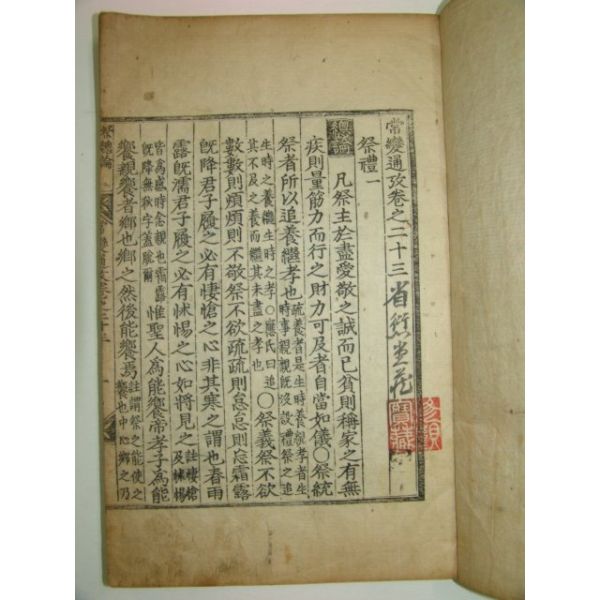 常變通攷卷之二十三
祭禮一
總論 凡祭主於盡愛敬之誠而已貧則稱家之有無
疾則量筋力而行之財力可及者自當如儀○祭統
祭者所以追養繼孝也 疏養者是生時養親孝者生時事親親既沒設禮祭之追
生時之養繼生時之孝○應氏曰追其不及之養而繼其未盡之孝也 ○祭義祭不欲
數數則煩煩則不敬祭不欲疏疏則怠怠則忘霜露
既降君子履之必有悽愴之心非其寒之謂也春雨
露既濡君子履之必有怵惕之心如將見之 註悽愴及怵惕
皆為感時念親也霜露既降無秋字蓋脫爾 惟聖人為能饗帝孝子為能
饗親饗者鄉也鄉之然後能饗焉 註謂祭之能使之饗也中心鄉之乃
祭總論
常變通攷卷之二十三